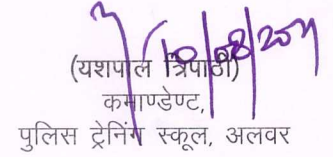 10/08/2011
(यशपाल त्रिपाठी)
कमाण्डेण्ट,
पुलिस ट्रेनिंग स्कूल, अलवर